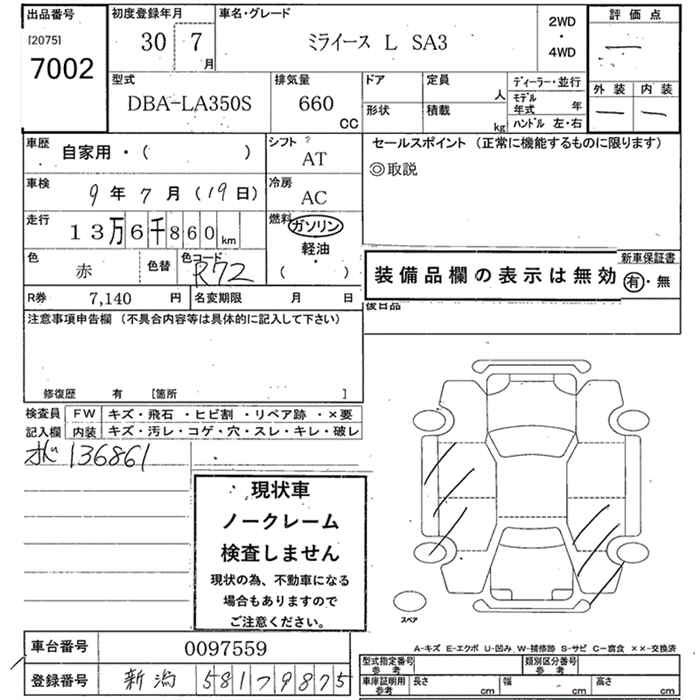 出品番号 初度登録年月 車名・グレード 2WD 評価点
[2075] 30 7 ミライース L SA3 ・ —
7002 月 4WD
型式 排気量 ドア 定員 ディーラー・並行 外装 内装
DBA-LA350S 660 人 モデル年式 年 — —
CC 形状 積載 kg ハンドル 左・右
車歴 自家用・( ) シフト AT セールスポイント (正常に機能するものに限ります)
車検 9年7月(19日) 冷房 AC ◎取説
走行 13万6千860km 燃料 ガソリン
軽油・
( )
色 赤 色替 色コード R72 新車保証書
装備品欄の表示は無効 有・無
R券 7,140 円 名変期限 月 日 後日品
注意事項申告欄 (不具合内容等は具体的に記入して下さい)
修復歴 有 [箇所 ]
検査員 FW キズ・飛石・ヒビ割・リペア跡・×要
記入欄 内装 キズ・汚レ・コゲ・穴・スレ・キレ・破レ
136861
現状車
ノークレーム
検査しません
現状の為、不動車になる
場合もありますので
ご注意ください。
スペア
A-キズ E-エクボ U-凹み W-補修跡 S-サビ C-腐食 ××-交換済
車台番号 0097559
型式指定番号 参考 類別区分番号 参考
登録番号 新潟 581 ワ 9875
車庫証明用 参考 長さ cm 幅 cm 高さ cm